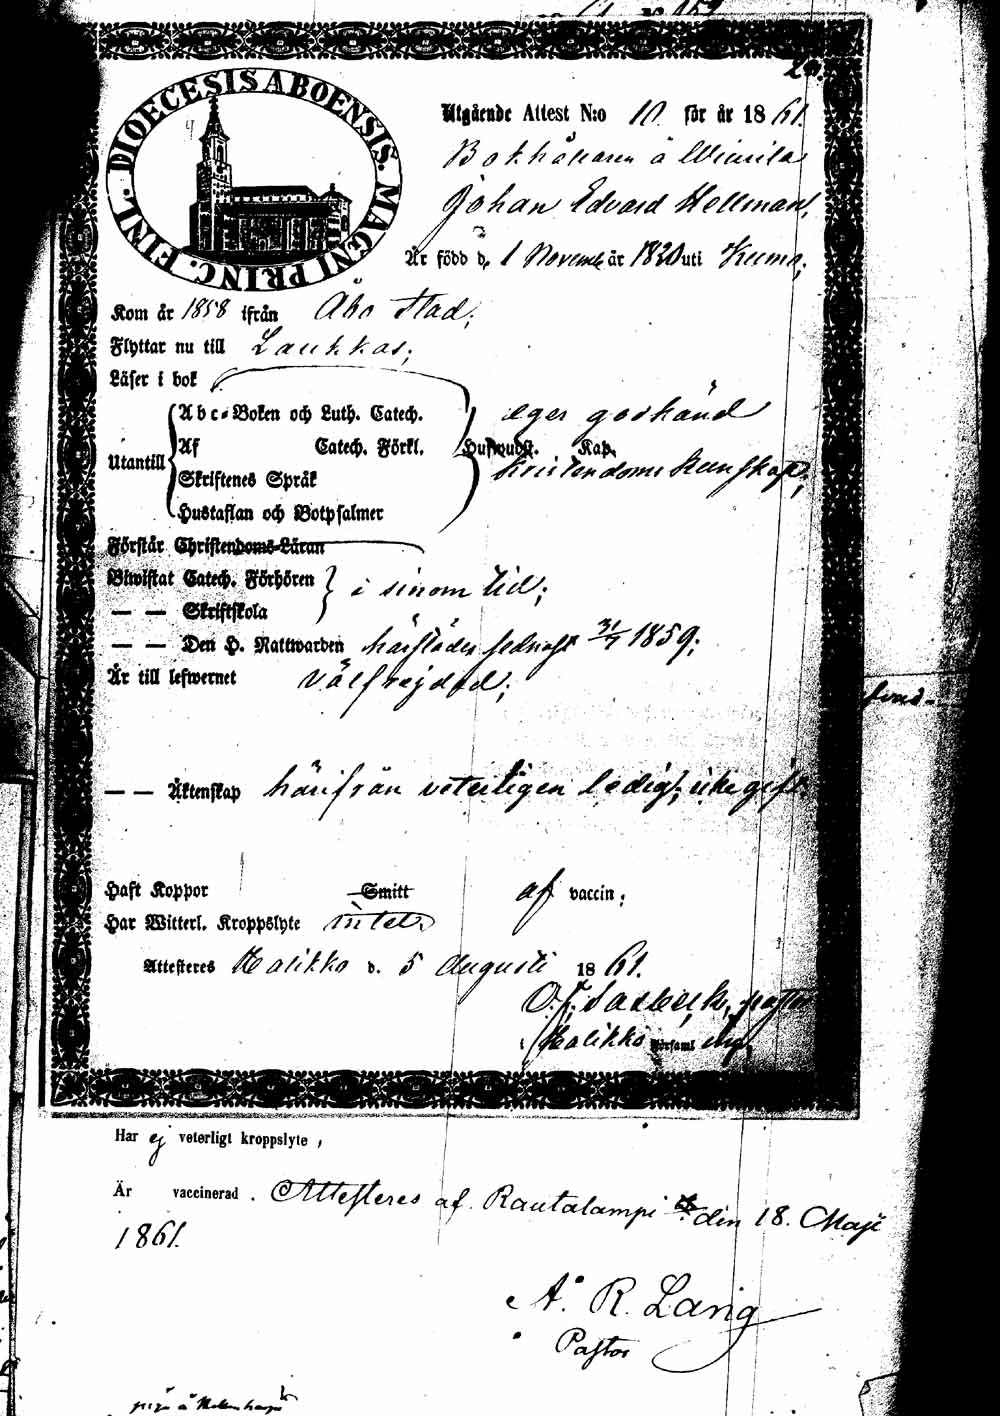 20.
DIOECESIS ABOENSIS. MAGNI PRINC. FINL.
Utgående Attest N:o 10 för år 1861.
Bokhållaren å Wiurila
Johan Edvard Hellman,
Är född d. 1 November år 1820 uti Kumo;
Kom år 1858 ifrån Åbo stad;
Flyttar nu till Laukkas;
Läser i bok
Abc-Boken och Luth. Catech. eger godkänd
Utantill Af Catech. Förkl. Husvudst. Kap. kristendoms kunskap;
Skriftenes Språk
Hustaflan och Botpsalmer
Förstår Christendoms-Läran
Biwistat Catech. Förhören i sinom tid;
— — Skriftskola
— — Den H. Nattwarden härstädes sednast 31/7 1859;
Är till lefwernet välfrejdad;
— — Äktenskap härifrån veterligen ledig, icke gift.
Haft Koppor Smitt af vaccin;
Har Witterl. Kroppslyte intet.
Attesteres Halikko d. 5 Augusti 1861.
pastor
i Halikko Församl
Har ej veterligt kroppslyte,
Är vaccinerad. Attesteres af Rautalampi den 18. Maji
1861.
A. R. Lang
Pastor